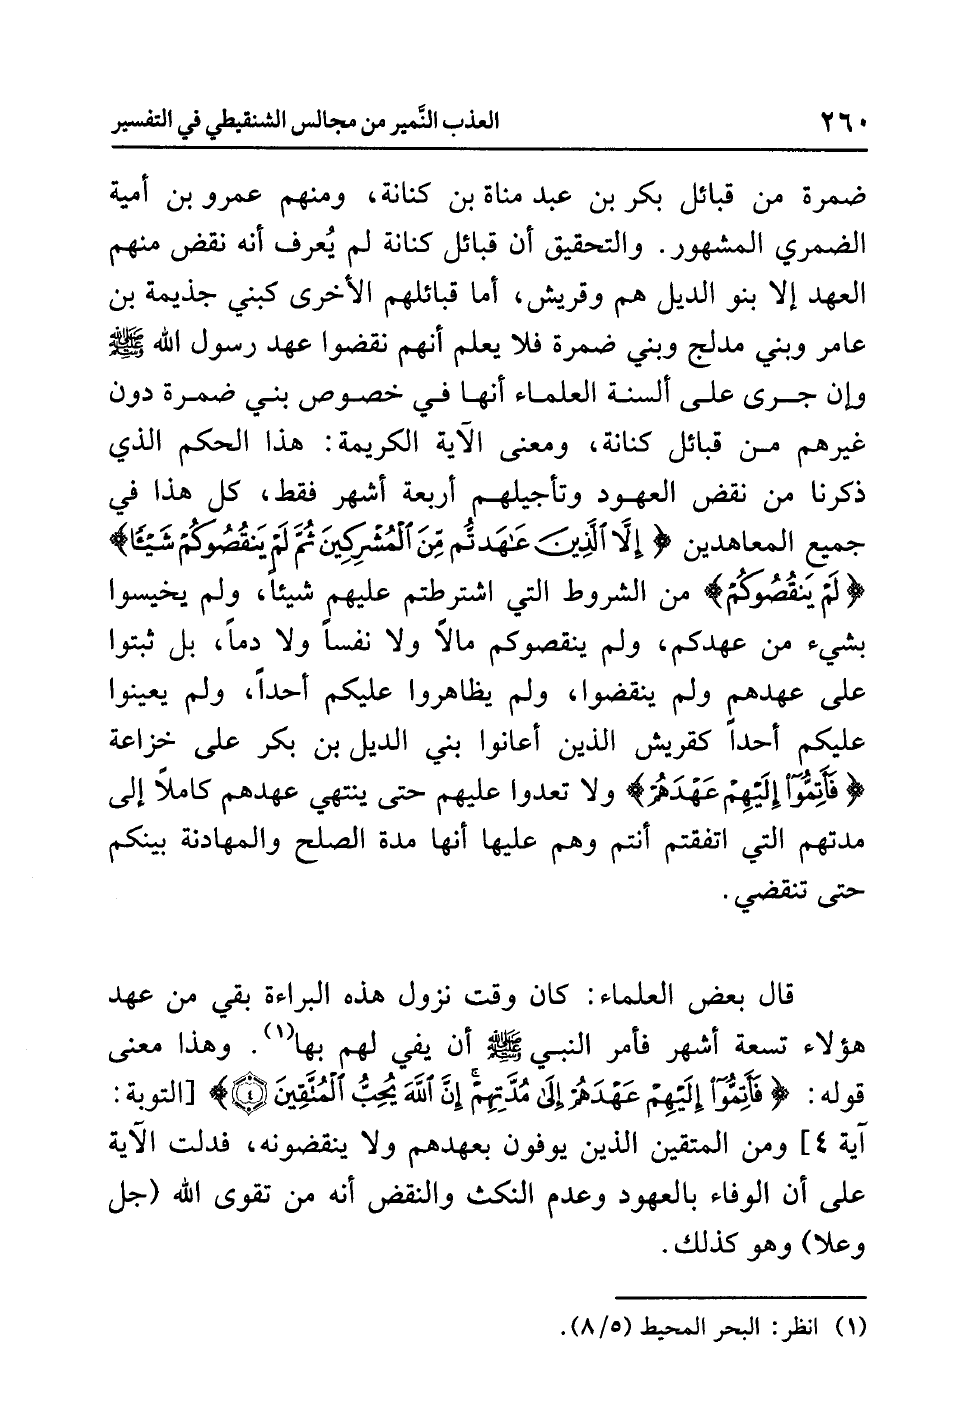 ٢٦٠ العذب النَّمير من مجالس الشنقيطي في التفسير
ضمرة من قبائل بكر بن عبد مناة بن كنانة، ومنهم عمرو بن أمية
الضمري المشهور. والتحقيق أن قبائل كنانة لم يُعرف أنه نقض منهم
العهد إلا بنو الديل هم وقريش، أما قبائلهم الأخرى كبني جذيمة بن
عامر وبني مدلج وبني ضمرة فلا يعلم أنهم نقضوا عهد رسول الله ﷺ
وإن جرى على ألسنة العلماء أنها في خصوص بني ضمرة دون
غيرهم من قبائل كنانة، ومعنى الآية الكريمة: هذا الحكم الذي
ذكرنا من نقض العهود وتأجيلهم أربعة أشهر فقط، كل هذا في
جميع المعاهدين ﴿ إِلَّا ٱلَّذِينَ عَٰهَدتُّم مِّنَ ٱلْمُشْرِكِينَ ثُمَّ لَمْ يَنقُصُوكُمْ شَيْـًٔا﴾
﴿ لَمْ يَنقُصُوكُمْ﴾ من الشروط التي اشترطتم عليهم شيئاً، ولم يخيسوا
بشيء من عهدكم، ولم ينقصوكم مالاً ولا نفساً ولا دماً، بل ثبتوا
على عهدهم ولم ينقضوا، ولم يظاهروا عليكم أحداً، ولم يعينوا
عليكم أحداً كقريش الذين أعانوا بني الديل بن بكر على خزاعة
﴿ فَأَتِمُّوٓا۟ إِلَيْهِمْ عَهْدَهُمْ﴾ ولا تعدوا عليهم حتى ينتهي عهدهم كاملاً إلى
مدتهم التي اتفقتم أنتم وهم عليها أنها مدة الصلح والمهادنة بينكم
حتى تنقضي.
قال بعض العلماء: كان وقت نزول هذه البراءة بقي من عهد
هؤلاء تسعة أشهر فأمر النبي ﷺ أن يفي لهم بها(١). وهذا معنى
قوله: ﴿ فَأَتِمُّوٓا۟ إِلَيْهِمْ عَهْدَهُمْ إِلَىٰ مُدَّتِهِمْ ۚ إِنَّ ٱللَّهَ يُحِبُّ ٱلْمُتَّقِينَ ٤﴾ [التوبة:
آية ٤] ومن المتقين الذين يوفون بعهدهم ولا ينقضونه، فدلت الآية
على أن الوفاء بالعهود وعدم النكث والنقض أنه من تقوى الله (جل
وعلا) وهو كذلك.
(١) انظر: البحر المحيط (٨/٥).